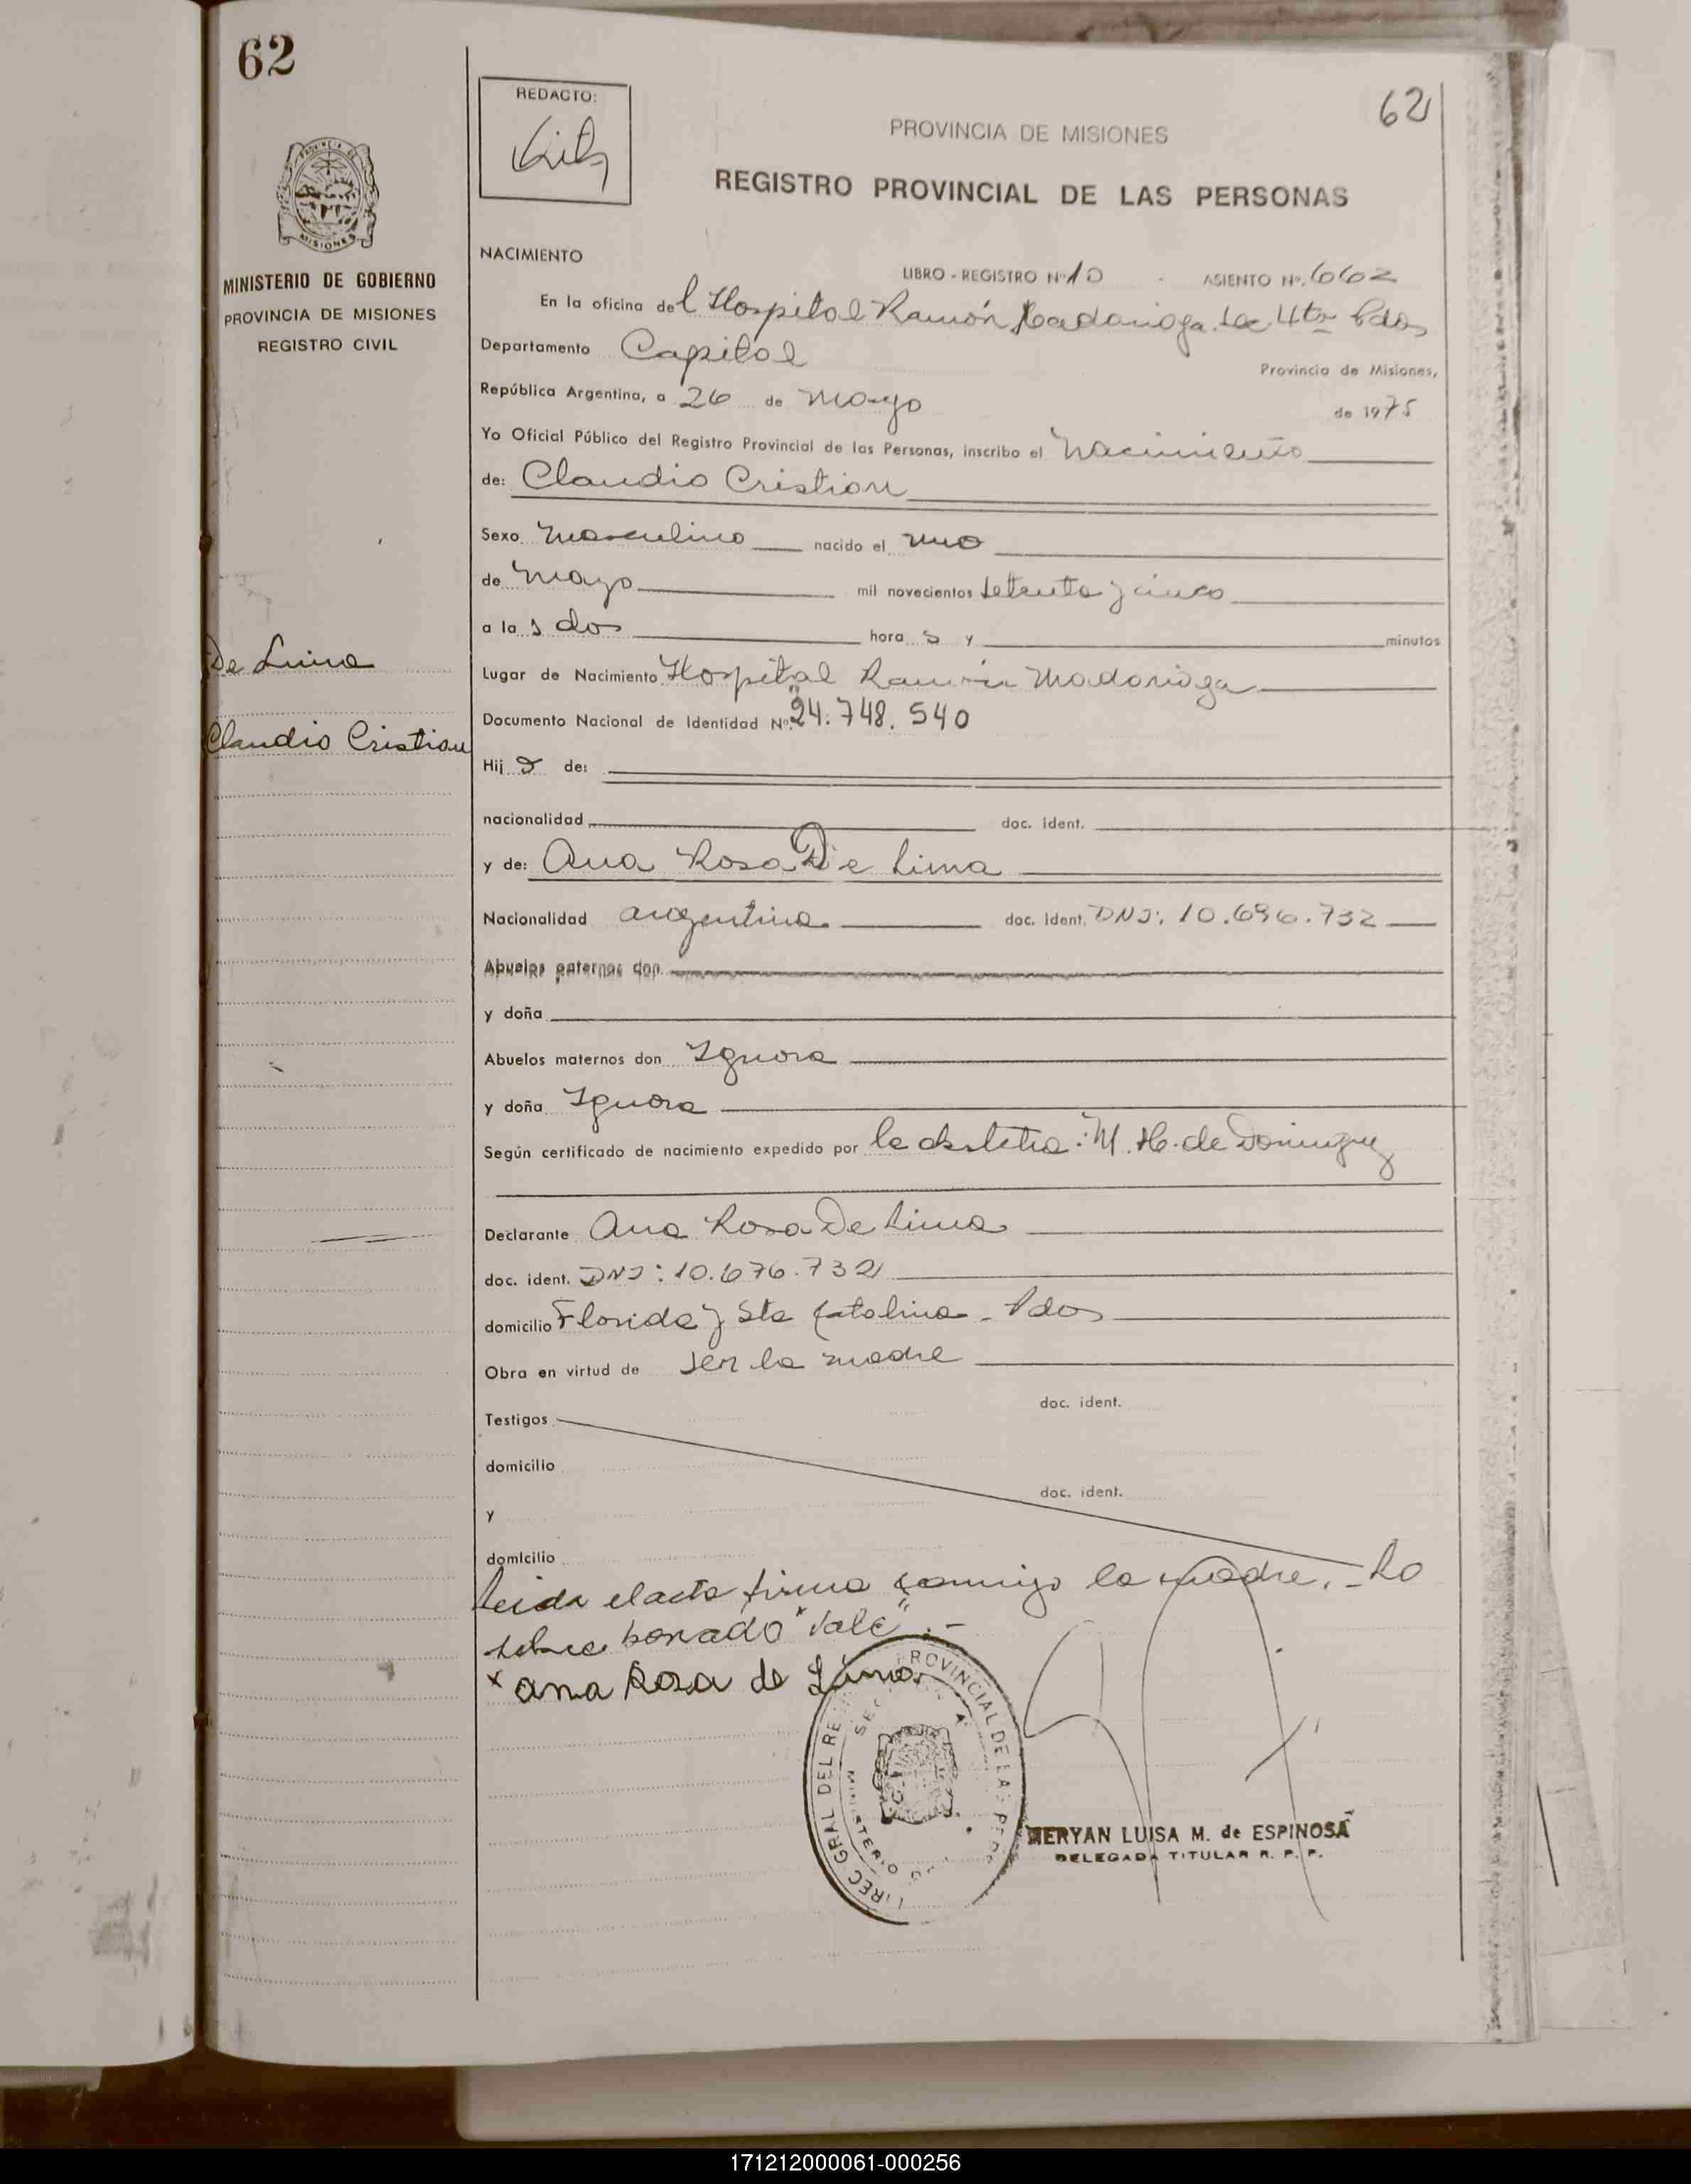 62
REDACTO:
62
PROVINCIA DE MISIONES
REGISTRO PROVINCIAL DE LAS PERSONAS
PROVINCIA DE
MISIONES
MINISTERIO DE GOBIERNO
PROVINCIA DE MISIONES
REGISTRO CIVIL
NACIMIENTO
LIBRO - REGISTRO Nº 10 - ASIENTO Nº 662
En la oficina del Hospital Ramón Madariaga. Sec. 4ta Pdas
Departamento Capital Provincia de Misiones,
República Argentina, a 26 de Mayo de 1975
Yo Oficial Público del Registro Provincial de las Personas, inscribo el Nacimiento
de: Claudio Cristian
Sexo Masculino nacido el uno
de Mayo mil novecientos setenta y cinco
a las dos horas y minutos
De Lima
Lugar de Nacimiento Hospital Ramón Madariaga
Documento Nacional de Identidad Nº 24.748.540
Claudio Cristian
Hijo de:
nacionalidad doc. ident.
y de: Ana Rosa De Lima
Nacionalidad argentina doc. ident. DNI: 10.696.732
Abuelos paternos don
y doña
Abuelos maternos don Ignora
y doña Ignora
Según certificado de nacimiento expedido por la obstetra: M. H. de Dominguez
Declarante Ana Rosa De Lima
doc. ident. DNI: 10.676.732
domicilio Florida y Sta Catalina - Pdas
Obra en virtud de ser la madre
doc. ident.
Testigos
domicilio
doc. ident.
y
domicilio
Leida el acta firma conmigo la madre. - Lo
sobre borrado "Vale". -
x Ana Rosa de Lima
PROVINCIAL DE LAS PERS
DIREC GRAL DEL RE
MINISTERIO
MERYAN LUISA M. de ESPINOSA
DELEGADA TITULAR R. P. P.
171212000061-000256